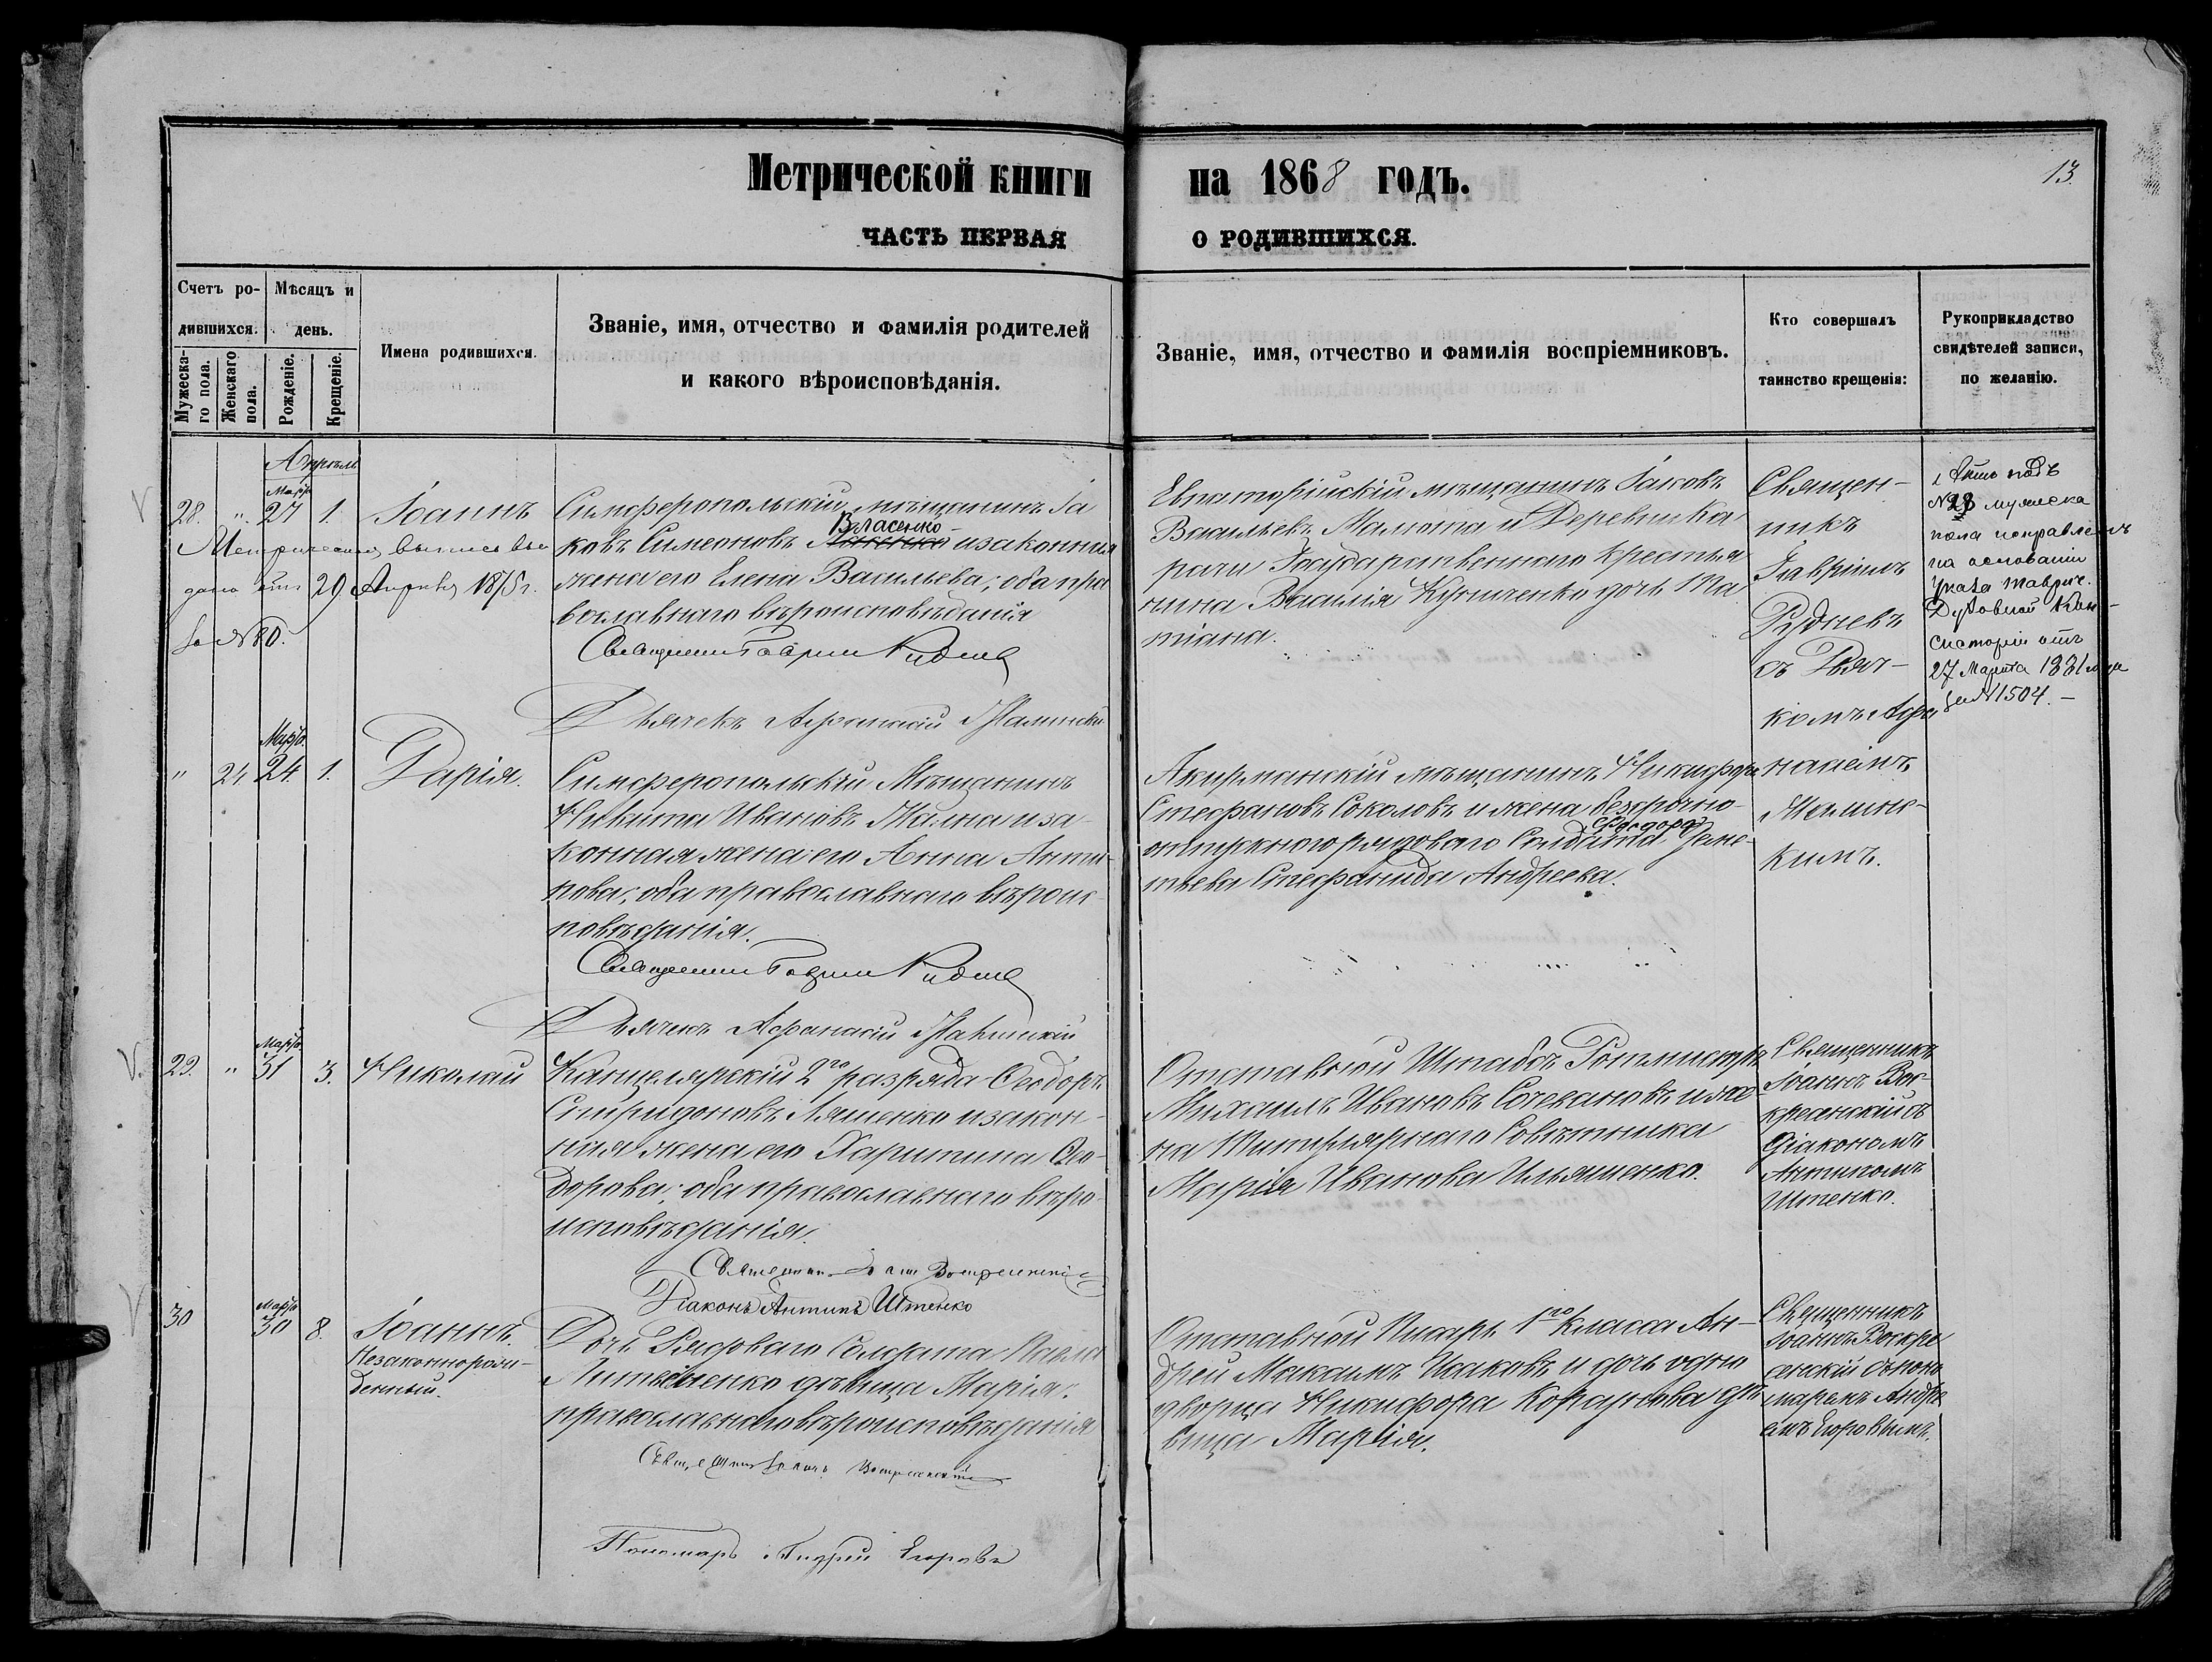 Метрической книги на 1868 годъ.
13.
ЧАСТЬ ПЕРВАЯ О РОДИВШИХСЯ.
Счетъ ро-
дившихся.
Мужеска-
го пола.
Женскаго
пола.
Мѣсяцъ и
день.
Рожденіе.
Крещеніе.
Имена родившихся.
Званіе, имя, отчество и фамилія родителей
и какого вѣроисповѣданія.
Званіе, имя, отчество и фамилія воспріемниковъ.
Кто совершалъ
таинство крещенія:
Рукоприкладство
свидѣтелей записи,
по желанію.
Апрѣль
Март.
28. " 27 1. Іоаннъ
Метрическая выпись вы
дана 29 Апрѣля 1875 г.
за № 80.
Симферопольскій мѣщанинъ Іа
Власенко
ковъ Симеоновъ и законная
жена его Елена Васильева; оба пра
вославнаго вѣроисповѣданія
Священникъ Гавріилъ Рудневъ
Дьячекъ Афанасій
Евпаторійскій мѣщанинъ Іаковъ
Васильевъ Мамота и Деревни Ка
рачи Государственнаго Крестья
нина Василія дочь Та
тіана.
Священ-
никъ
Гавріилъ
Рудневъ
съ Дьяч-
комъ Афа
насіемъ
кимъ.
Актъ подъ
№ 28 мужеска
пола исправленъ
на основаніи
Указа Таврич.
Духовной Кон-
систоріи отъ
27 Марта 1881 года
за № 1504. –
Март.
" 24. 24. 1. Дарія.
Симферопольскій Мѣщанинъ
Никита Ивановъ и за-
конная жена его Анна Анти-
пова; оба православнаго вѣроис-
повѣданія.
Священникъ Гавріилъ Рудневъ
Дьячекъ Афанасій
Акерманскій мѣщанинъ Никифоръ
Стефановъ Соколовъ и жена безсрочно-
Феодора
отпускнаго рядоваго Солдата
Стефанида Андреева.
Март.
29. " 31 3. Николай
Канцелярскій 2го разряда Ѳеодоръ
Спиридоновъ Ляшенко и закон-
ная жена его Харитина Ѳео-
дорова; оба православнаго вѣро-
исповѣданія.
Священникъ Іоаннъ Воскресенскій
Діаконъ Антипъ Штенко
Отставной Штабсъ Ротмистръ
Михаилъ Ивановъ и же-
на Титулярнаго Совѣтника
Марія Иванова Ильяшенко.
Священникъ
Іоаннъ Вос-
кресенскій съ
Діакономъ
Антипомъ
Штенко.
Март.
30 30 8. Іоаннъ
Незаконнорож-
денный.
Дочь Рядоваго Солдата Павла
дѣвица Марія;
православнаго вѣроисповѣданія
Священникъ Іоаннъ Воскресенскій
Пономарь Андрей Егоровъ
Отставной Писарь 1го класса Ан-
дрей Максимъ Исаковъ и дочь одно
дворца Никифора дѣ
вица Марія.
Священникъ
Іоаннъ Воскре
сенскій съ поно
маремъ Андре
емъ Егоровымъ.